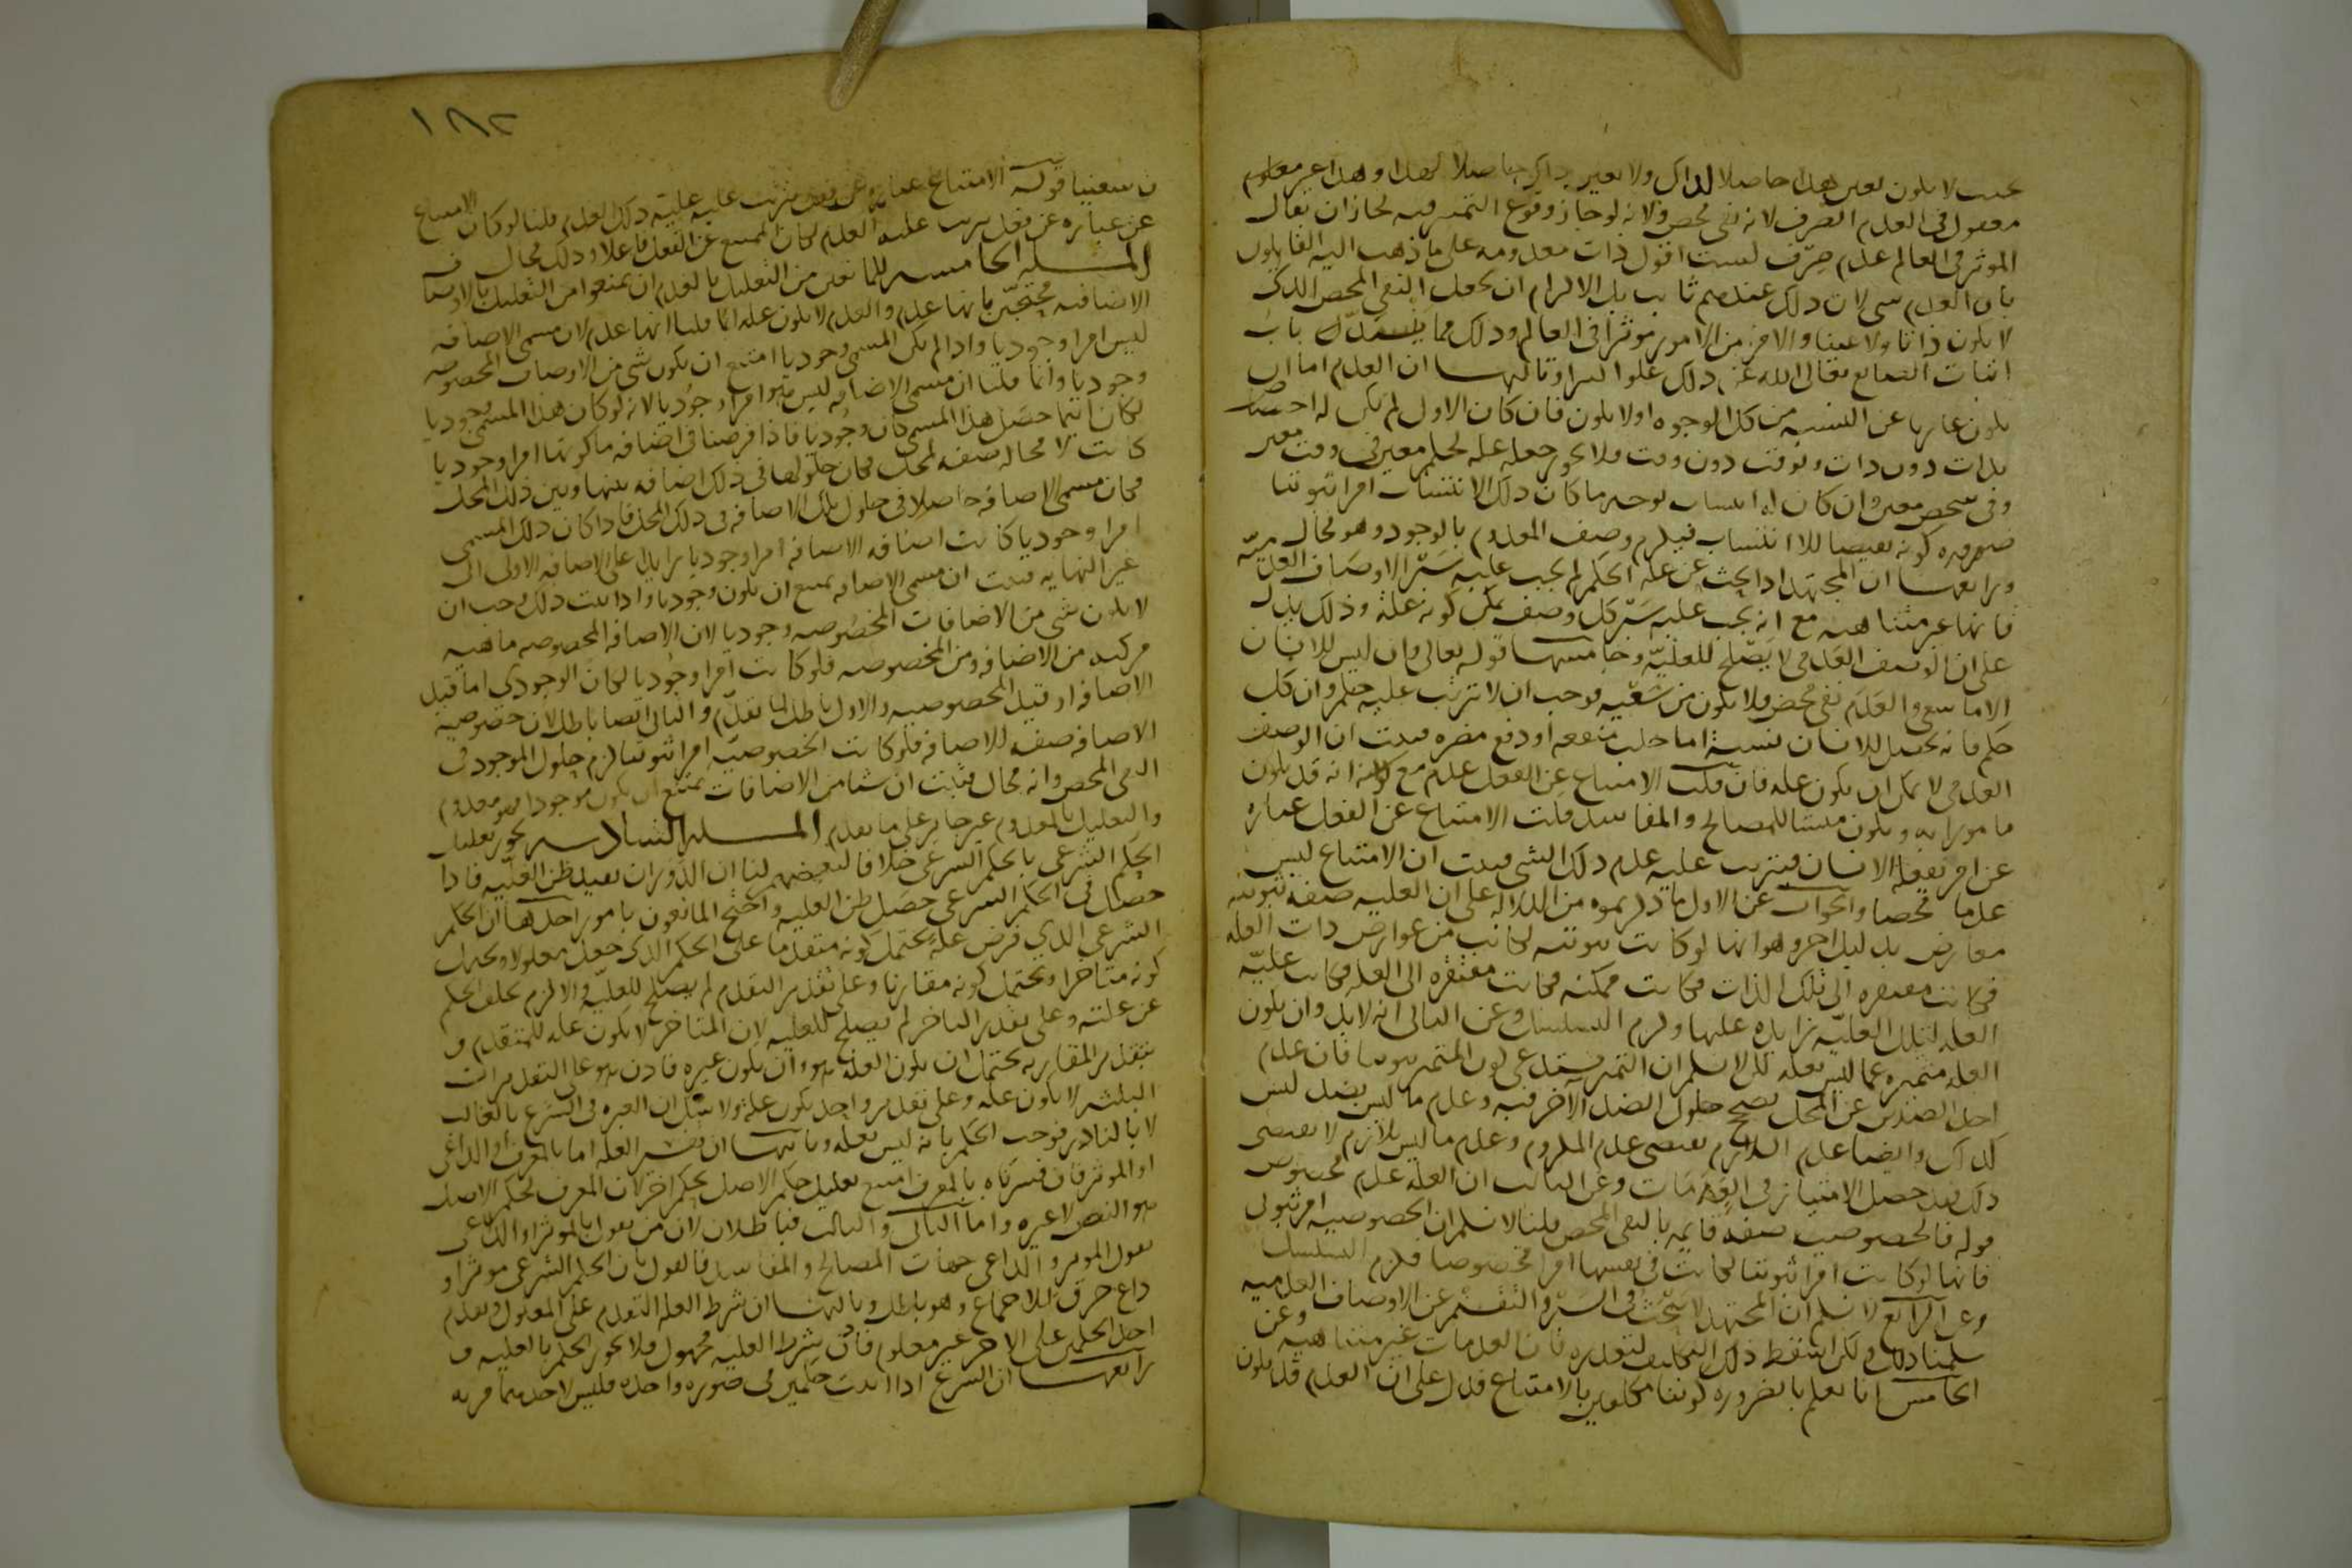 بحيث لا يكون تعين هذا حاصلا لذاك ولا تعين ذاك حاصلا لهذا وهذا غير معلوم
معقول في العدم الصرف لانه نفي محض ولانه لو جاز وقوع التميز فيه لجاز ان يقال
الموثر في العالم عدم صرف لست اقول ذات معدومه على ما ذهب اليه القايلون
بان المعدوم شي لان ذلك عندهم ثابت بل الالزام ان يجعل النفي المحض الذي
لا يكون ذاتا ولا عينا ولا امرا من الامور موثرا في العالم وذلك مما يسد باب
اثبات الصانع تعالى الله عن ذلك علوا كبيرا وثالثها ان العدم اما ان
يكون عاريا عن النسبه من كل الوجوه اولا يكون فان كان الاول لم يكن له اختصاص
بذات دون ذات وبوقت دون وقت فلا يجوز جعله عله لحكم معين في وقت معين
وفي شخص معين وان كان له انتساب بوجه ما كان ذلك الانتساب امرا ثبوتيا
ضروره كونه نقيضا للاانتساب فيلزم وصف المعدوم بالوجود وهو محال
ورابعها ان المجتهد اذا بحث عن علة الحكم لم يجب عليه سبر الاوصاف العدميه
فانها غير متناهيه مع انه يجب عليه سبر كل وصف يمكن كونه علة وذلك يدل
على ان الوصف العدمي لا يصلح للعليه وخامسها قوله تعالى وان ليس للانسان
الا ما سعى والعدم نفي محض فلا يكون من سعيه فوجب ان لا يترتب عليه حكم وان كل
حكم فانه يحصل للانسان بسببه اما جلب منفعه او دفع مضره فثبت ان الوصف
العدمي لا يمكن ان يكون عله فان قلت الامتناع عن الفعل عدم مع انه قد يكون
مامورا به ويكون منشا للمصالح والمفاسد قلت الامتناع عن الفعل عباره
عن امر يفعله الانسان فيترتب عليه عدم ذلك الشي فثبت ان الامتناع ليس
عدما محضا والجواب عن الاول ما ذكرتموه من الدلاله على ان العليه صفه ثبوتيه
معارض بدليل اخر وهو انها لو كانت ثبوتيه لكانت من عوارض ذات العله
فكانت مفتقره الى تلك الذات فكانت ممكنه فكانت مفتقره الى العله فكانت عليه
العله لتلك العليه زايده عليها ولزم التسلسل وعن الثاني انه لا بد وان يكون
العله متميزه عما ليس بعله لكن لا نسلم ان التميز يستدعي كون المتميز ثبوتيا فان عدم
احد الضدين عن المحل يصح حلول الضد الآخر فيه وعدم ما ليس بضد ليس
كذلك وايضا عدم اللازم يقتضي عدم الملزوم وعدم ما ليس بلازم لا يقتضي
ذلك فقد حصل الامتياز في العدمات وعن الثالث ان العله عدم مخصوص
قوله فالخصوصيه صفه قايمه بالنفي المحض قلنا لا نسلم ان الخصوصيه امر ثبوتي
فانها لو كانت امرا ثبوتيا لكانت في نفسها امرا مخصوصا فلزم التسلسل
وعن الرابع لا نسلم ان المجتهد لا يبحث في السبر والتقسيم عن الاوصاف العدميه
سلمنا ذلك ولكن سقط ذلك التكليف لتعذره فان العدمات غير متناهيه وعن
الخامس انا نعلم بالضروره كوننا مكلفين بالامتناع فدل على ان العدم قد يكون
١٨٢
من سعينا قوله الامتناع عباره عن فعل يترتب عليه ذلك العدم قلنا لو كان الامتناع
عن عباره عن فعل يترتب عليه العدم لكان الممتنع عن الفعل فاعلا وذلك محال
المسله الخامسه للمانعين من التعليل بالعدم ان يمنعوا من التعليل بالاوصاف
الاضافيه محتجين بانها عدم والعدم لا يكون عله انما قلنا انها عدم لان مسمى الاضافه
ليس امرا وجوديا واذا لم يكن المسمى وجوديا امتنع ان يكون شي من الاوصاف المخصوصه
وجوديا وانما قلنا ان مسمى الاضافه ليس امرا وجوديا لانه لو كان هذا المسمى وجوديا
لكان اينما حصل هذا المسمى كان وجوديا فاذا فرضنا في اضافه ما كونها امرا وجوديا
كانت لا محاله صفه لمحل فكان حلولها في ذلك اضافه بينها وبين ذلك المحل
فكان مسمى الاضافه حاصلا في حلول تلك الاضافه في ذلك المحل فاذا كان ذلك المسمى
امرا وجوديا كانت اضافه الاضافه امرا وجوديا زايدا على الاضافه الاولى الى
غير النهايه فثبت ان مسمى الاضافه يمتنع ان يكون وجوديا واذا ثبت ذلك وجب ان
لا يكون شي من الاضافات المخصوصه وجوديا لان الاضافه المخصوصه ماهيه
مركبه من الاضافه ومن الخصوصيه فلو كانت امرا وجوديا لكان الوجودي اما قبل
الاضافه او قبل الخصوصيه والاول باطل لما تقدم والثاني ايضا باطل لان خصوصيه
الاضافه صفه للاضافه فلو كانت الخصوصيه امرا ثبوتيا لزم حلول الموجود في
النفي المحض وانه محال فثبت ان شيا من الاضافات يمتنع ان يكون موجودا فهو معدوم
والتعليل بالمعدوم غير جايز على ما تقدم المسله السادسه يجوز تعليل
الحكم الشرعي بالحكم الشرعي خلافا لبعضهم لنا ان الدوران يفيد ظن العليه فاذا
حصل في الحكم الشرعي حصل ظن العليه واحتج المانعون بامور احدها ان الحكم
الشرعي الذي فرض علة يحتمل كونه متقدما على الحكم الذي جعل معلولا ويحتمل
كونه متاخرا ويحتمل كونه مقارنا وعلى تقدير التقدم لم يصلح للعليه والا لزم تخلف الحكم
عن علته وعلى تقدير التاخر لم يصلح للعليه لان المتاخر لا يكون عله للمتقدم و
بتقدير المقارنه يحتمل ان يكون العله هو وان يكون غيره فاذن هو على التقديرات
الثلثه لا يكون عله وعلى تقدير واحد يكون علة ولا شك ان العبره في الشرع بالغالب
لا بالنادر فوجب الحكم بانه ليس بعله وثانيها ان نفسر العله اما بالمعرف او الداعي
او الموثر فان فسرناه بالمعرف امتنع تعليل حكم الاصل بحكم اخر لان المعرف لحكم الاصل
هو النص لا غيره واما الثاني والثالث فباطلان لان من يقول بالموثر او الداعي
يقول الموثر والداعي جهات المصالح والمفاسد فالقول بان الحكم الشرعي موثر او
داع خرق للاجماع وهو باطل وثالثها ان شرط العله التقدم على المعلول وتقدم
احد الحكمين على الاخر غير معلوم فاذن شرط العليه مجهول فلا يجوز الحكم بالعليه و
رابعها ان الشرع اذا اثبت حكمين في صوره واحده فليس لاحدهما مزيه